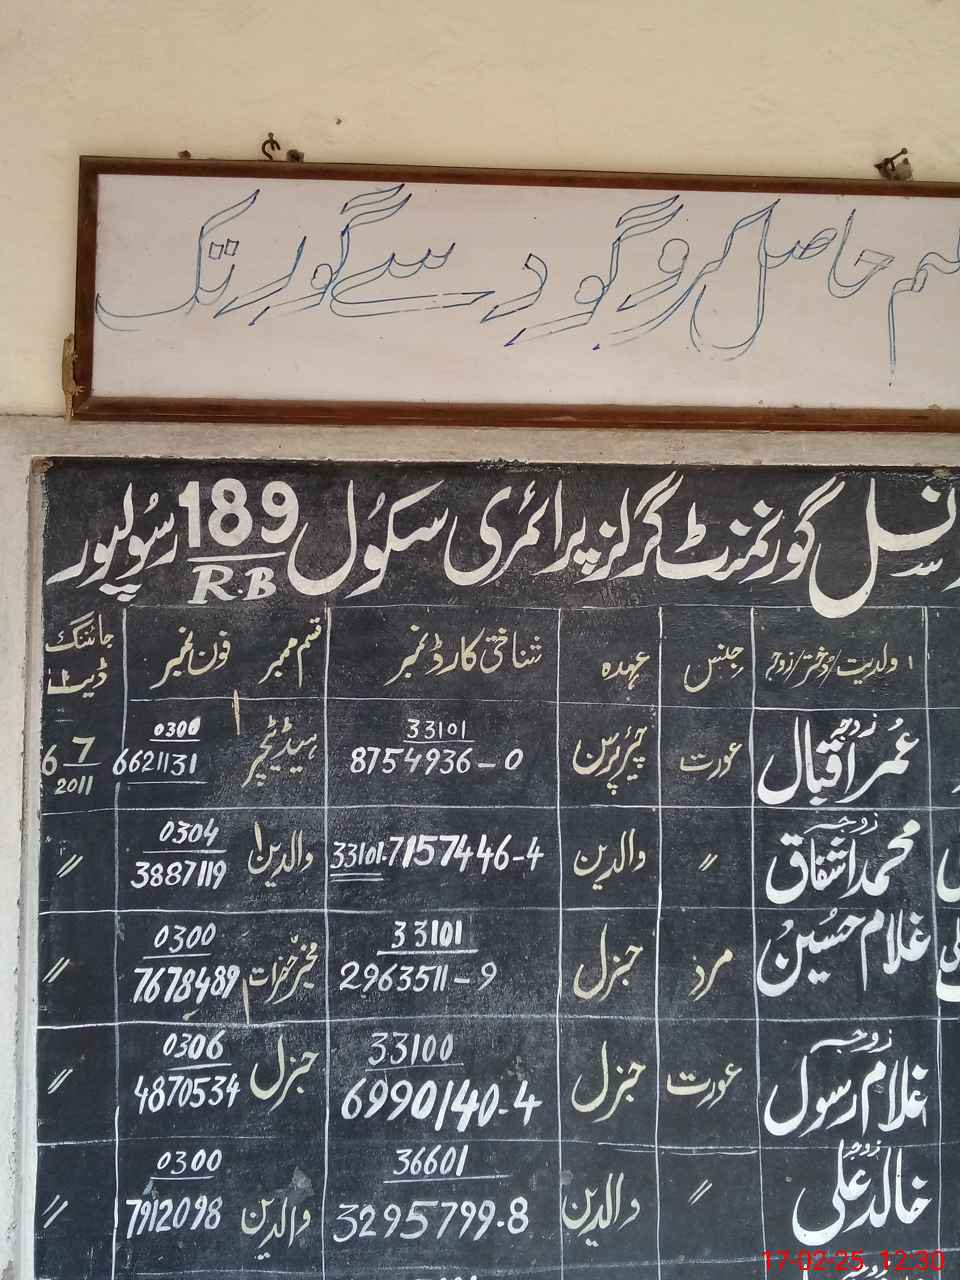 حاصل کرو گود سے گور تک
گورنمنٹ گرلز پرائمری سکول 189 RB رسولپور
ولدیت/دختر/زوجہ جنس عہدہ شناختی کارڈ نمبر قسم ممبر فون نمبر جائننگ ڈیٹ
زوجہ عمر اقبال عورت چیئرپرسن 33101 8754936-0 ہیڈ ٹیچر 0300 6621131 6 7 2011
زوجہ محمد اشفاق 〃 والدین 33101-7157446-4 والدین 0304 3887119 〃
غلام حسین مرد جنرل 33101 2963511-9 مخیر حضرات 0300 7678489 〃
زوجہ غلام رسول عورت جنرل 33100 6990140-4 جنرل 0306 4870534 〃
زوجہ خالد علی 〃 والدین 36601 3295799-8 والدین 0300 7912098 〃
17-02-25 12:30